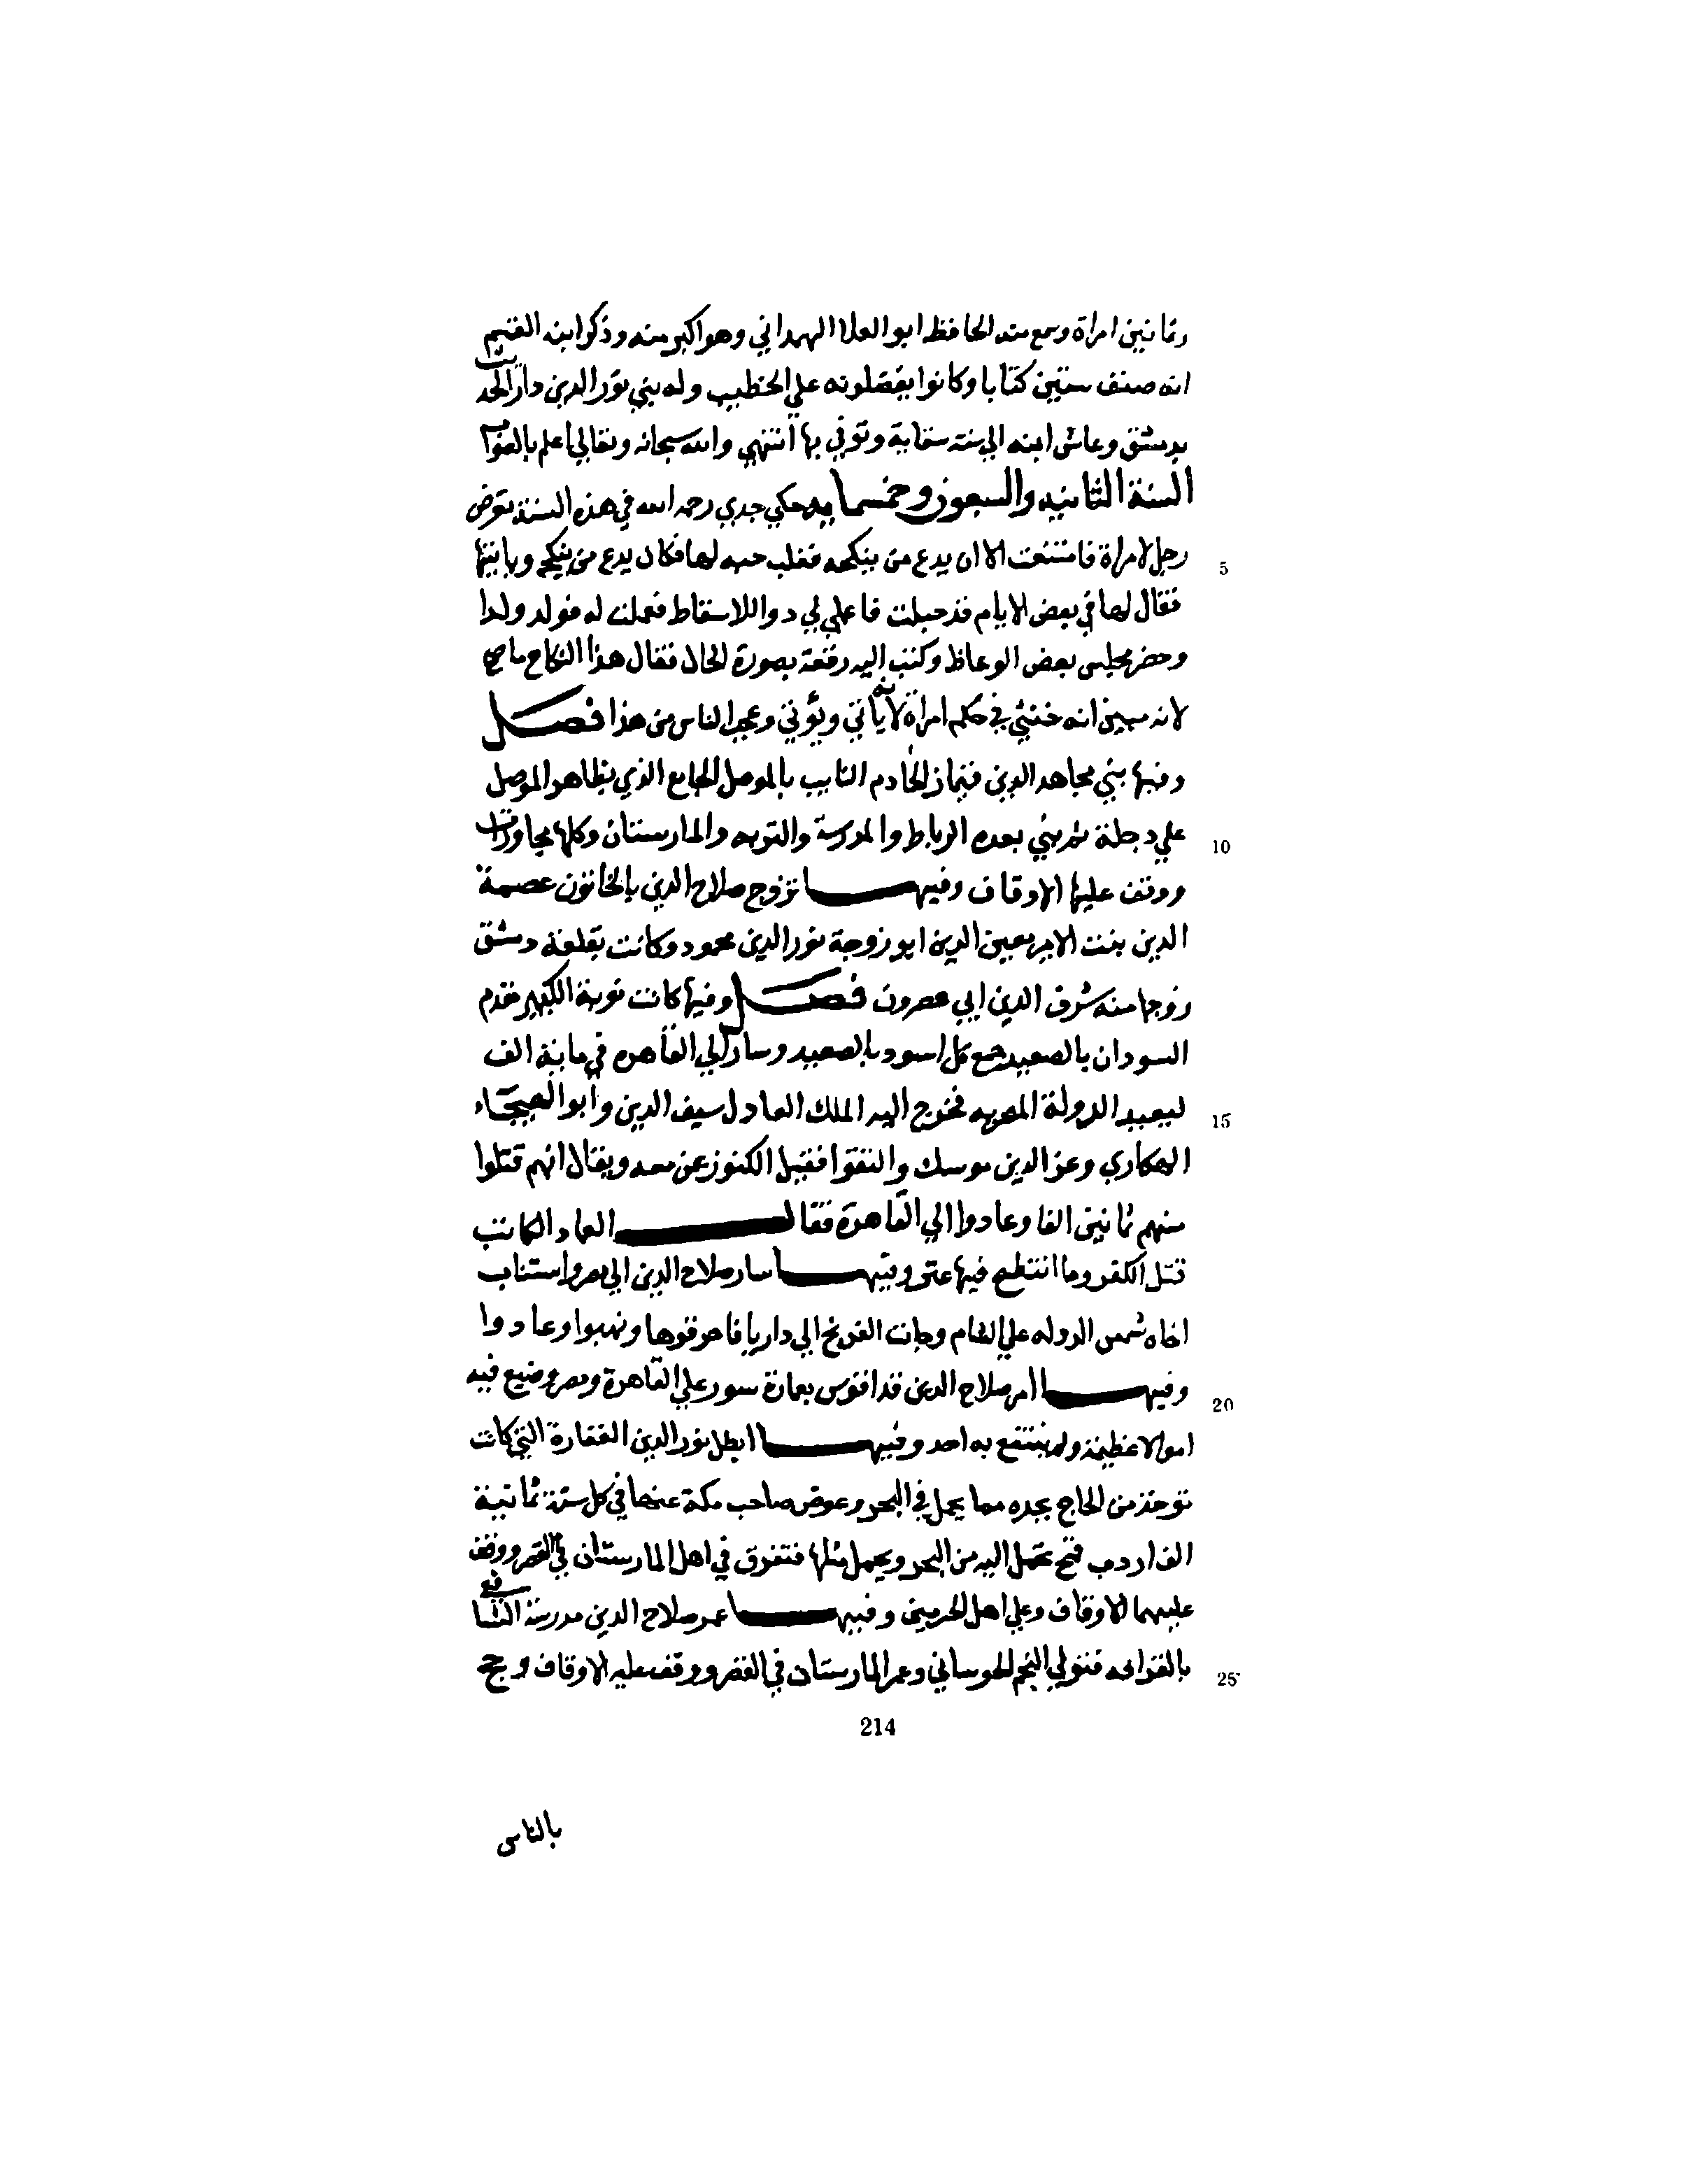 وثمانين امراة وسمع منه الحافظ ابو العلا الهمداني وهو اكبر منه وذكر ابنه القسم
انه صنف ستين كتابا وكانوا يفضلونه علي الخطيب وله بني نور الدين دار الحديث
بدمشق وعاش ابنه الي سنة ستماية وتوفي بها انتهي والله سبحانه وتعالي اعلم بالصواب
السنة الثانيه والسبعون وخمسمايه حكي جدي رحمه الله في هذه السنة تعرض
5 رجل لامراة فامتنعت الا ان يدع من ينكحه فغلب حبه لها فكان يدع من ينكحه وياتيها
فقال لها في بعض الايام قد حبلت فاعملي لي دوا للاسقاط فعملت له فولد ولدا
وحضر مجلس بعض الوعاظ وكتب اليه رقعة بصورة الحال فقال هذا النكاح ما صح
لانه يبين انه خنثي في حكم امراة لانه ياتي ويؤتي وعجب الناس من هذا فصل
وفيها بني مجاهد الدين قيماز الخادم النايب بالموصل الجامع الذي بظاهر الموصل
10 علي دجلة ثم بني بعده الرباط والمدرسة والتربه والمارستان وكلها مجاورات
ووقف عليها الاوقاف وفيها تزوج صلاح الدين بالخاتون عصمة
الدين بنت الامير معين الدين ابو زوجة نور الدين محمود وكانت بقلعة دمشق
زوجها منه شرف الدين ابي عصرون فصل وفيها كانت نوبة الكنز مقدم
السودان بالصعيد جمع كل اسود بالصعيد وسار الي القاهره في ماية الف
15 ليعيد الدولة المصريه فخرج اليه الملك العادل سيف الدين وابو الهيجاء
الهكاري وعز الدين موسك والتقوا فقتل الكنوز عن معه ويقال انهم قتلوا
منهم ثمانين الفا وعادوا الي القاهرة فقال العماد الكاتب
قتل الكفر وما انتطح فيها عنز وفيها سار صلاح الدين الي مصر واستناب
اخاه شمس الدوله علي الشام وجات الفرنج الي داريا فاحرقوها ونهبوا وعادوا
20 وفيها امر صلاح الدين قراقوس بعمارة سور علي القاهرة ومصر وضيع فيه
اموالا عظيمة ولم ينتفع به احد وفيها ابطل نور الدين الفقارة التي كانت
توخذ من الحاج بجده مما يحمل في البحر وعوض صاحب مكة عنها في كل سنة ثمانية
الف اردب قمح تحمل اليه من البحر ويحمل مثلها فتفرق في اهل المارستان في القصر ووقف
عليهما الاوقاف وعلي اهل الحرمين وفيها عمر صلاح الدين مدرسة الشافعي
25 بالقرافه فتولي النجم الخوساني وعمر المارستان في القصر ووقف عليه الاوقاف وحج
214
بالناس